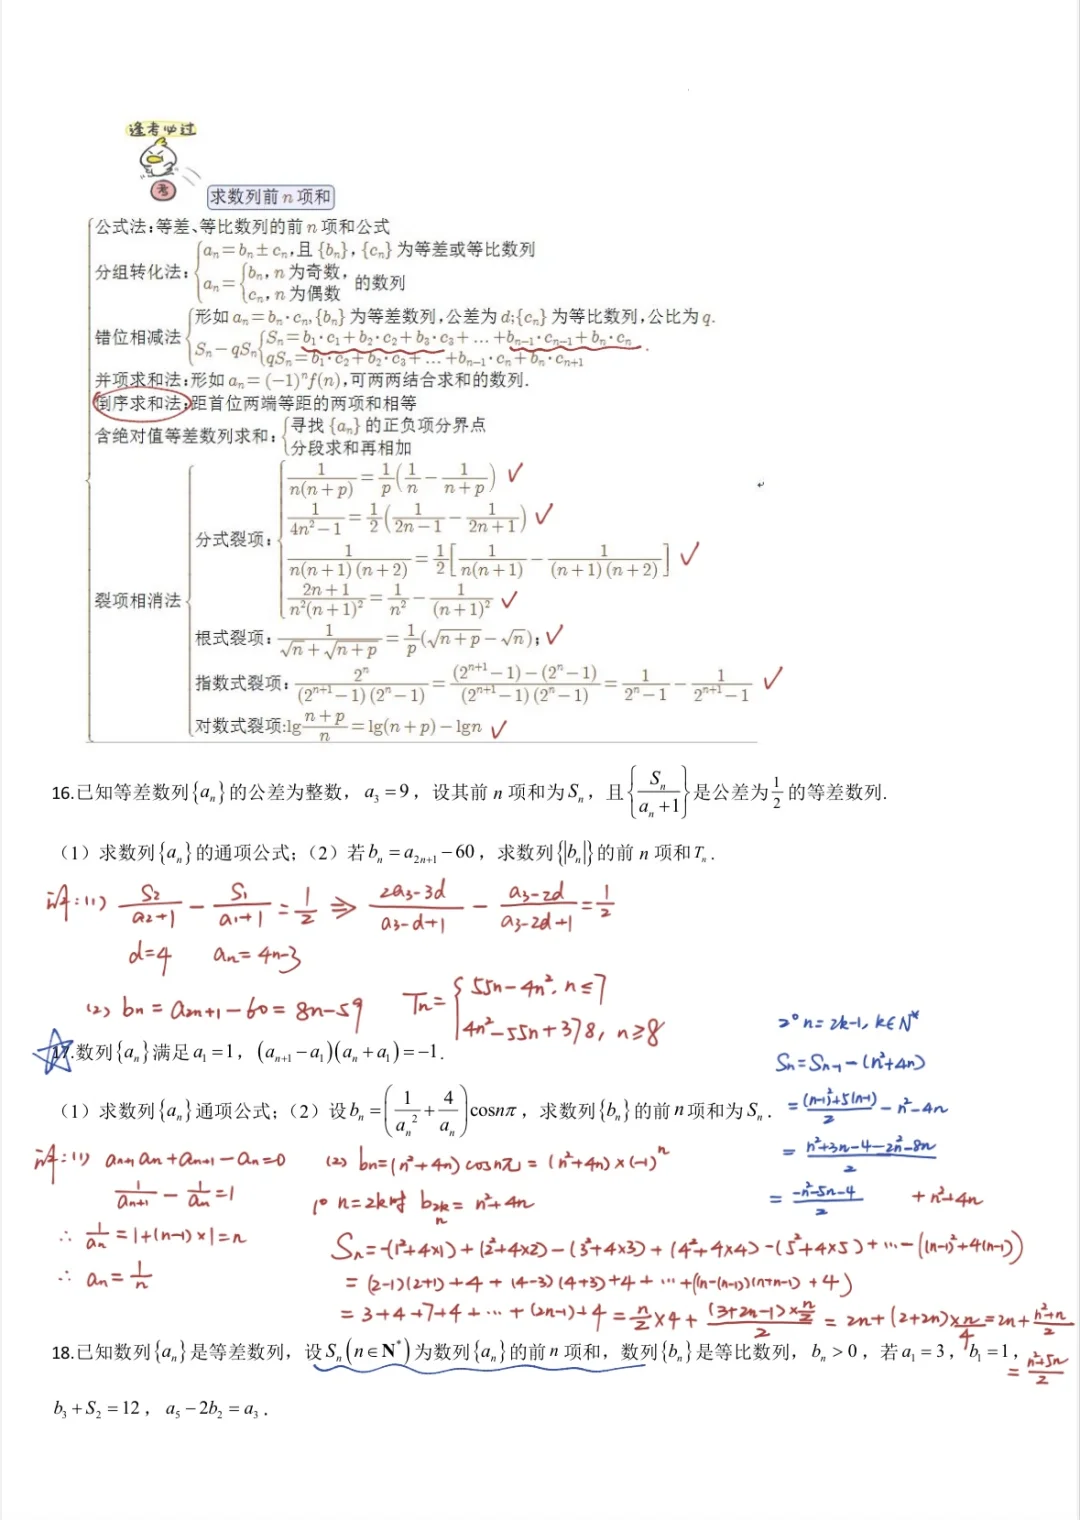 逢考必过
考
求数列前n项和
公式法:等差、等比数列的前n项和公式
分组转化法: { aₙ=bₙ±cₙ,且{bₙ},{cₙ}为等差或等比数列
aₙ= { bₙ,n为奇数, cₙ,n为偶数 的数列
错位相减法 { 形如aₙ=bₙ·cₙ,{bₙ}为等差数列,公差为d;{cₙ}为等比数列,公比为q.
Sₙ-qSₙ { Sₙ=b₁·c₁+b₂·c₂+b₃·c₃+…+bₙ₋₁·cₙ₋₁+bₙ·cₙ
qSₙ=b₁·c₂+b₂·c₃+…+bₙ₋₁·cₙ+bₙ·cₙ₊₁ .
并项求和法:形如aₙ=(-1)ⁿf(n),可两两结合求和的数列.
倒序求和法:距首位两端等距的两项和相等
含绝对值等差数列求和: { 寻找{aₙ}的正负项分界点
分段求和再相加
裂项相消法
分式裂项:
1/(n(n+p)) = 1/p (1/n - 1/(n+p)) ✓
1/(4n²-1) = 1/2 (1/(2n-1) - 1/(2n+1)) ✓
1/(n(n+1)(n+2)) = 1/2 [1/(n(n+1)) - 1/((n+1)(n+2))] ✓
(2n+1)/(n²(n+1)²) = 1/n² - 1/(n+1)² ✓
根式裂项: 1/(√n+√(n+p)) = 1/p (√(n+p)-√n); ✓
指数式裂项: 2ⁿ/((2ⁿ⁺¹-1)(2ⁿ-1)) = ((2ⁿ⁺¹-1)-(2ⁿ-1))/((2ⁿ⁺¹-1)(2ⁿ-1)) = 1/(2ⁿ-1) - 1/(2ⁿ⁺¹-1) ✓
对数式裂项:lg (n+p)/n = lg(n+p)-lgn ✓
16.已知等差数列{aₙ}的公差为整数,a₃=9,设其前n项和为Sₙ,且{Sₙ/(aₙ+1)}是公差为1/2的等差数列.
(1)求数列{aₙ}的通项公式;(2)若bₙ=a₂ₙ₊₁-60,求数列{|bₙ|}的前n项和Tₙ.
解:(1) S₂/(a₂+1) - S₁/(a₁+1) = 1/2 ⇒ (2a₃-3d)/(a₃-d+1) - (a₃-2d)/(a₃-2d+1) = 1/2
d=4 aₙ=4n-3
(2) bₙ=a₂ₙ₊₁-60=8n-59 Tₙ= { 55n-4n², n≤7
4n²-55n+378, n≥8
17.数列{aₙ}满足a₁=1,(aₙ₊₁-a₁)(aₙ+a₁)=-1.
(1)求数列{aₙ}通项公式;(2)设bₙ=(1/aₙ²+4/aₙ)cosnπ,求数列{bₙ}的前n项和为Sₙ.
解:(1) aₙ₊₁aₙ+aₙ₊₁-aₙ=0
1/aₙ₊₁ - 1/aₙ = 1
∴ 1/aₙ = 1+(n-1)×1=n
∴ aₙ = 1/n
(2) bₙ=(n²+4n)cosnπ=(n²+4n)×(-1)ⁿ
1° n=2k时 b₂ₖ=n²+4n
n
Sₙ=-(1²+4×1)+(2²+4×2)-(3²+4×3)+(4²+4×4)-(5²+4×5)+…-((n-1)²+4(n-1))
+n²+4n
=(2-1)(2+1)+4+(4-3)(4+3)+4+…+((n-(n-1))(n+n-1)+4)
=3+4+7+4+…+(2n-1)+4=n/2×4+(3+2n-1)×n/2/2=2n+(2+2n)×n/4=2n+(n²+n)/2
=(n²+5n)/2
2° n=2k-1,k∈N*
Sₙ=Sₙ₋₁-(n²+4n)
=((n-1)²+5(n-1))/2-n²-4n
=(n²+3n-4-2n²-8n)/2
=(-n²-5n-4)/2
18.已知数列{aₙ}是等差数列,设Sₙ(n∈N*)为数列{aₙ}的前n项和,数列{bₙ}是等比数列,bₙ>0,若a₁=3,b₁=1,
b₃+S₂=12,a₅-2b₂=a₃.